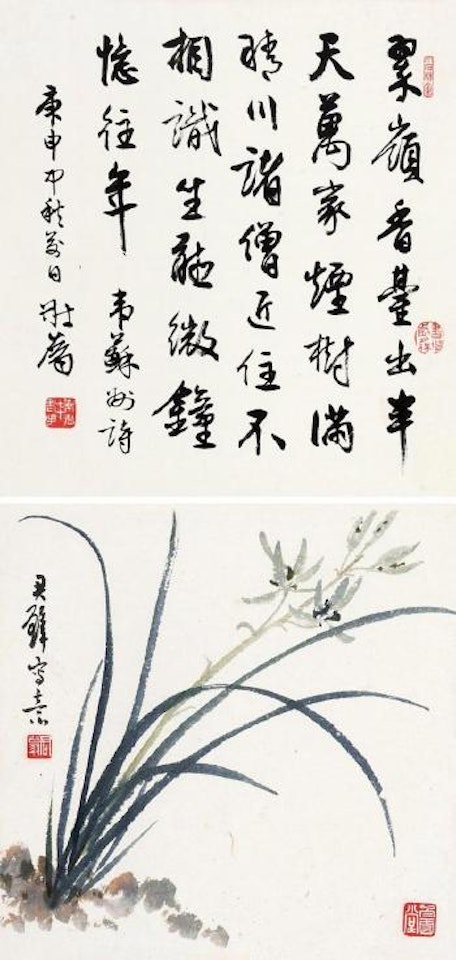 翠嶺香臺出半
天萬家煙樹滿
晴川諸僧近住不
相識坐聽微鐘
憶往年 韦蘇州詩
庚申中秋前日
君 寫意